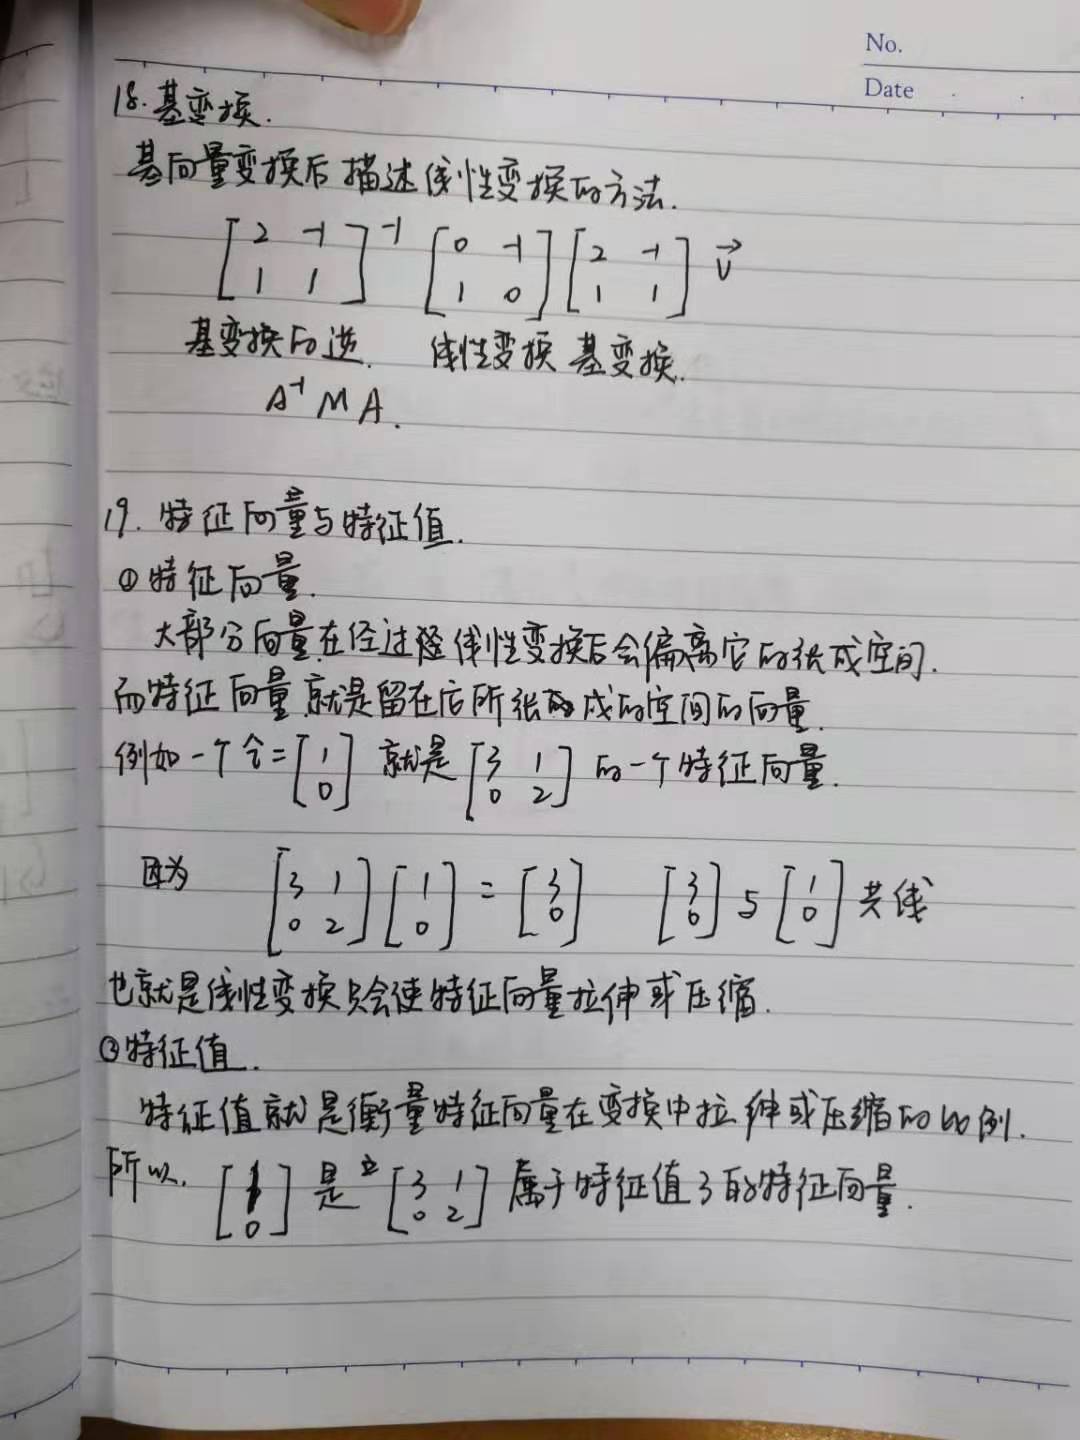 No.
Date
18. 基变换.
基向量变换后描述线性变换的方法.
[2 -1; 1 1]^-1 [0 -1; 1 0] [2 -1; 1 1] v⃗
基变换的逆. 线性变换 基变换.
A^-1 M A.
19. 特征向量与特征值.
① 特征向量.
大部分向量在经过线性变换后会偏离它的张成空间.
而特征向量就是留在后所张成的空间的向量.
例如一个 = [1; 0] 就是 [3 1; 0 2] 的一个特征向量.
因为 [3 1; 0 2] [1; 0] = [3; 0] [3; 0] 与 [1; 0] 共线
也就是线性变换只会使特征向量拉伸或压缩.
② 特征值.
特征值就是衡量特征向量在变换中拉伸或压缩的比例.
所以. [1; 0] 是 [3 1; 0 2] 属于特征值3的特征向量.